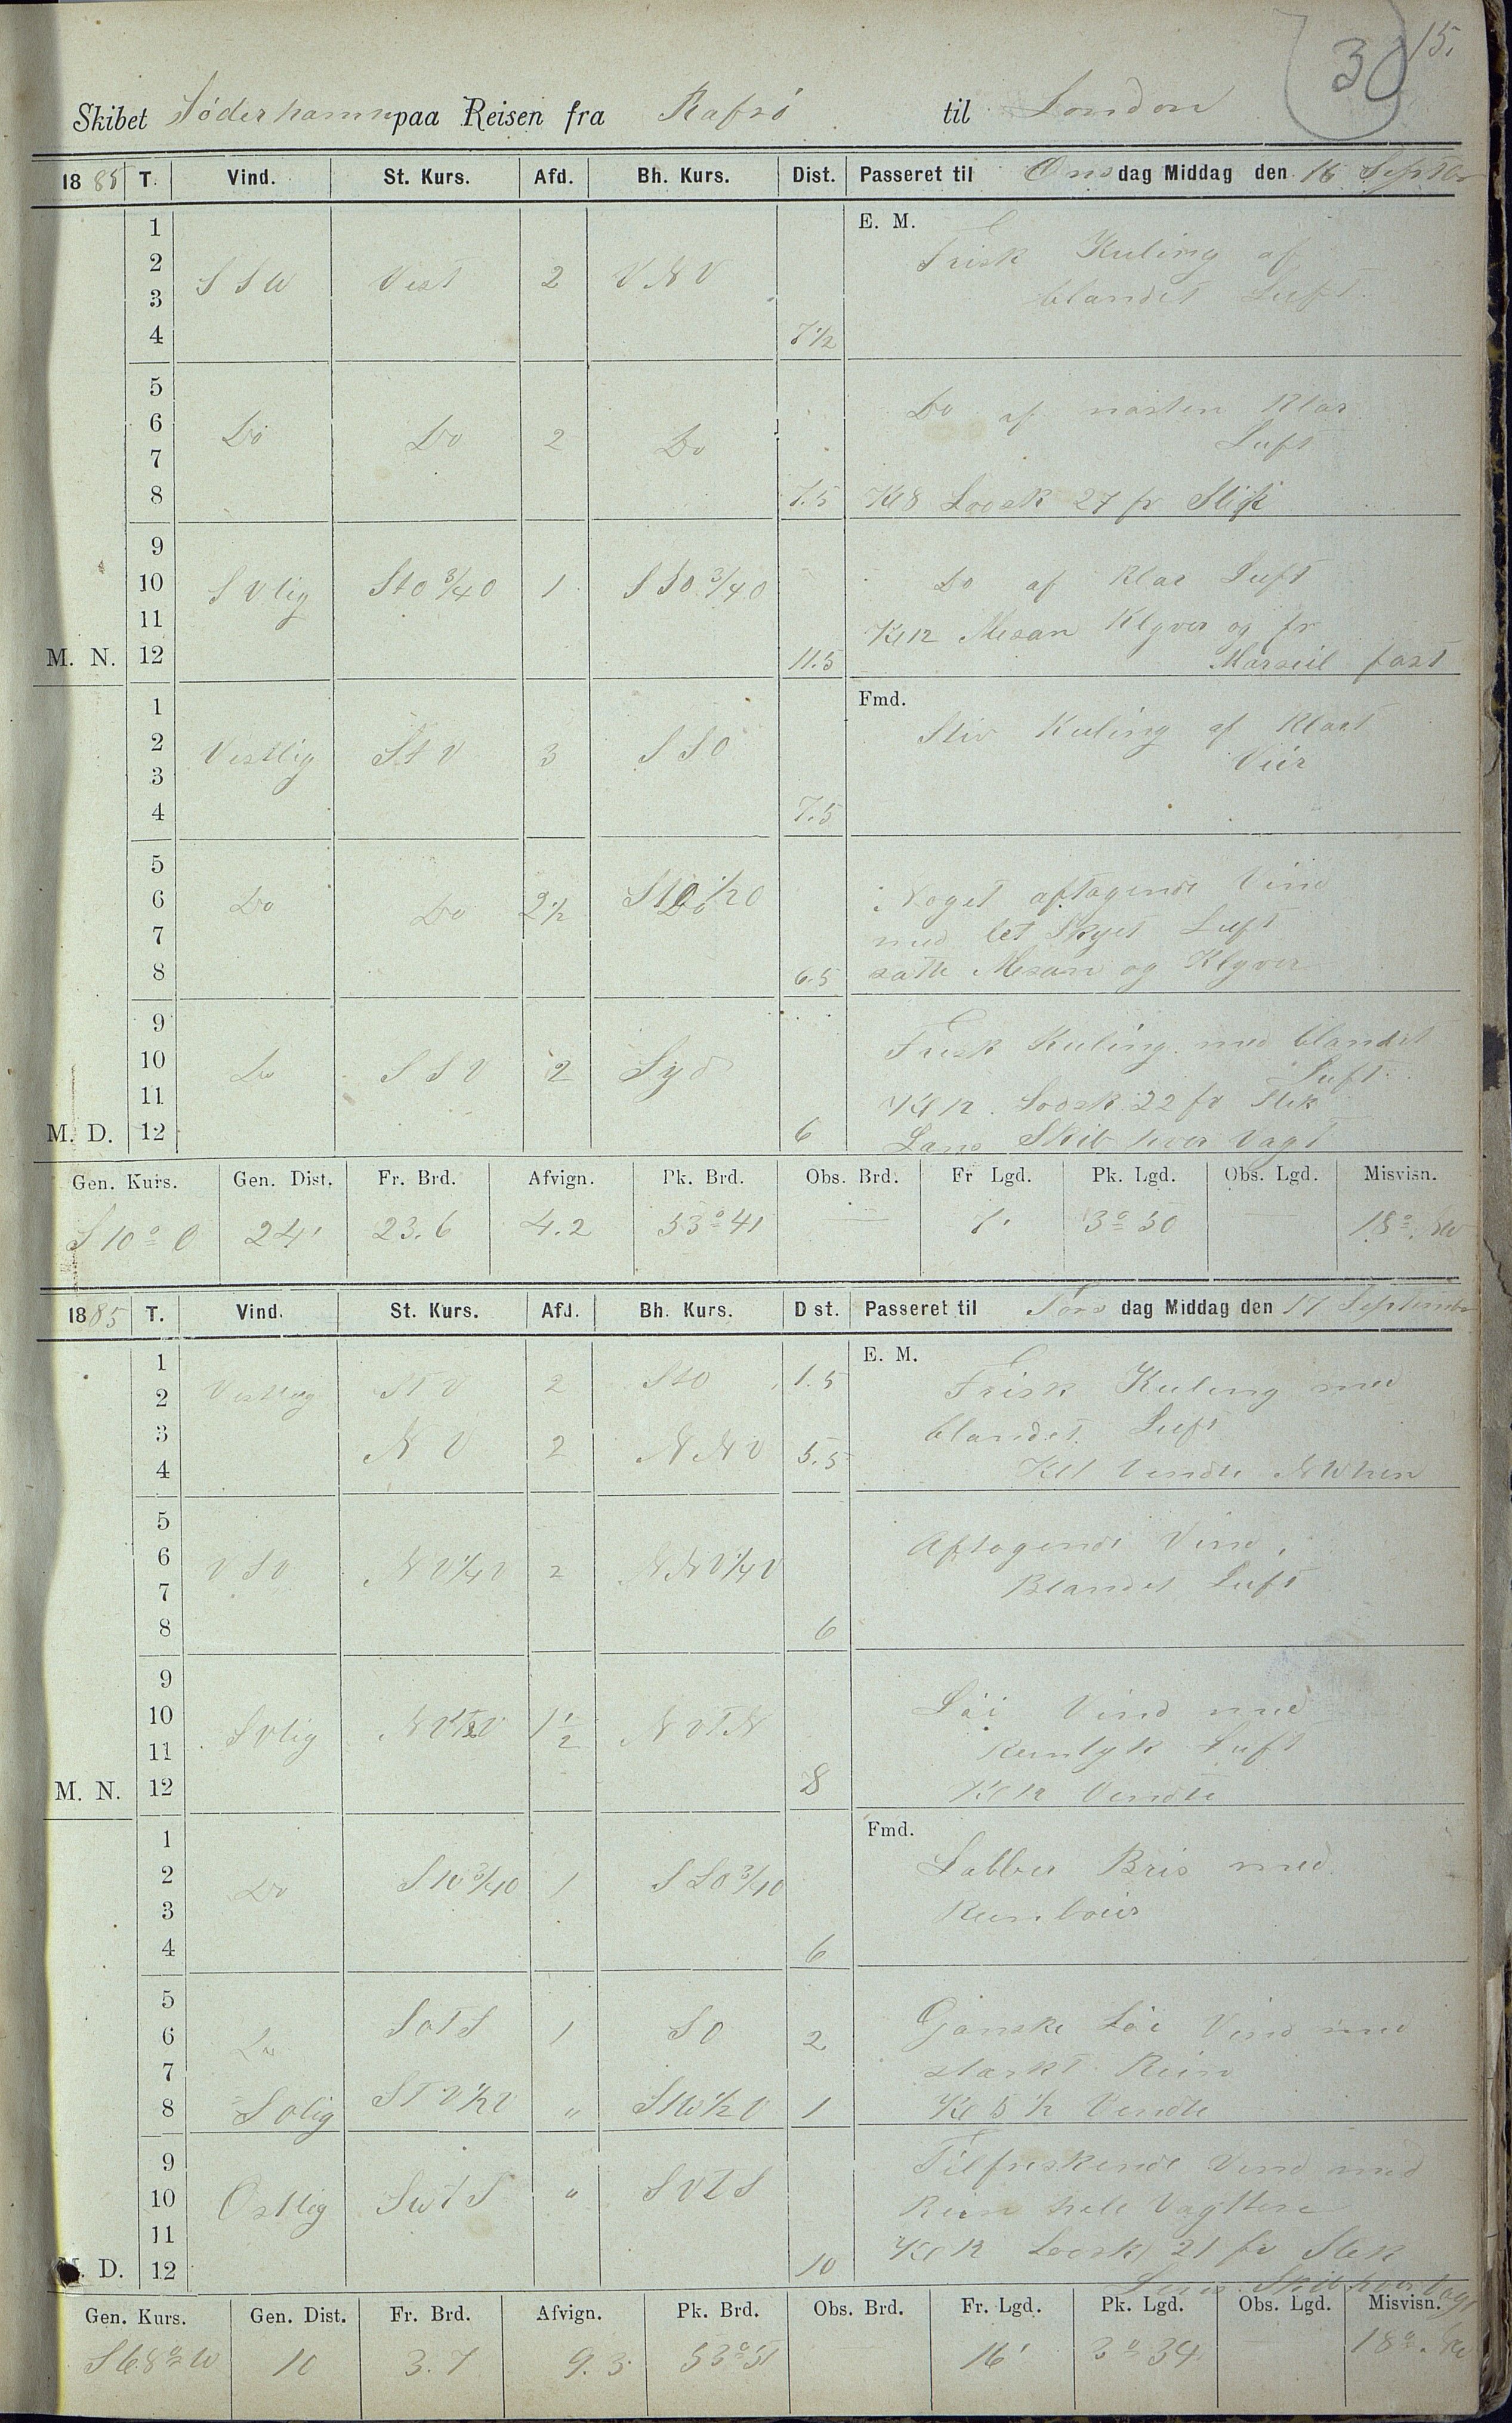 15.
30
Skibet Söderhamn paa Reisen fra Rafsö til London
1885 T. Vind. St. Kurs. Afd. Bh. Kurs. Dist. Passeret til Onsdag Middag den 16 Septbr
E. M.
1
2
3
4
SSW Vest 2 VNV 7 1/2
Frisk Kuling af
blandet Luft.
5
6
7
8
Do Do 2 Do 7.5
Do af nästen Klar
Luft
Kl 8 Lodsk 27 fv Slik
9
10
11
M. N. 12
SVlig StO 3/4 O 1 SSO 3/4 O 11.5
Do af Klar Luft
Kl 12 Mesan Klyver og fr
Marseil fast
Fmd.
1
2
3
4
Vestlig StV 3 SSO 7.5
Stiv Kuling af Klart
Veir
5
6
7
8
Do Do 2 1/2 StO 1/2 O 6.5
Noget aftagende Vind
med let Skyet Luft
satte Mesan og Klyver
9
10
11
M. D. 12
Do SSV 2 Syd 6
Frisk Kuling med blandet
Luft.
Kl 12. Lodsk. 22 fv Slik
Lens Skib hver Vagt
Gen. Kurs. Gen. Dist. Fr. Brd. Afvign. Pk. Brd. Obs. Brd. Fr Lgd. Pk. Lgd. Obs. Lgd. Misvisn.
S 10° O 24' 23.6 4.2 53° 41 — 7' 3° 50 — 18°
1885 T. Vind. St. Kurs. Afd. Bh. Kurs. Dst. Passeret til Tors dag Middag den 17 September
E. M.
1
2
3
4
Vestlig StV 2 StO 1.5
NV 2 NNV 5.5
Frisk Kuling med
blandet Luft
Kl 1 Vendte
5
6
7
8
VSV NV 1/4 V 2 NNV 1/4 V 6
Aftagende Vind,
Blandet Luft
9
10
11
M. N. 12
SVlig NV 1/2 V 1 1/2 NVTN 8
Löi Vind med
Luft
Kl 12 Vendte
Fmd.
1
2
3
4
Do StO 3/4 O 1 SSO 3/4 O 6
Labber Bris med
5
6
7
8
Do SOTS 1 SO 2
SOlig STV 1/2 V " StW 1/2 V 1
Ganske Löi Vind med
starkt Rein
Kl 5 1/2 Vendte
9
10
11
M. D. 12
Ostlig SWTS " SVTS 10
Tilfriskende Vind med
Rein hele Vagtene
Kl 12 Lodsk 21 fv Slik
Lens Skib hver Vagt
Gen. Kurs. Gen. Dist. Fr. Brd. Afvign. Pk. Brd. Obs. Brd. Fr. Lgd. Pk. Lgd. Obs. Lgd. Misvisn.
S 68° W 10 3.7 9.3 53° 51 16' 3° 34 — 18°